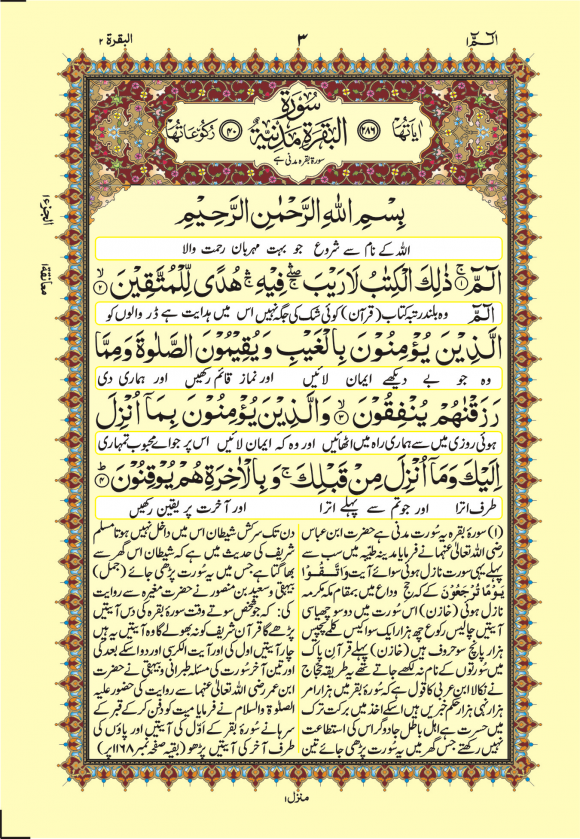 الٓـمّٓ ۱
۳
البقرة ۲
اٰیَاتُهَا ۲۸۶
سُوْرَةُ الْبَقَرَةِ مَدَنِیَّةٌ
۴۰ رُكُوْعَاتُهَا
سورۂ بقرہ مدنی ہے
الجزء ۱
معانقة ۱
بِسْمِ اللّٰهِ الرَّحْمٰنِ الرَّحِیْمِ
اللہ کے نام سے شروع جو بہت مہربان رحمت والا
الٓمّٓ ۚ۱ ذٰلِكَ الْكِتٰبُ لَا رَیْبَ ۛۖ فِیْهِ ۛۚ هُدًی لِّلْمُتَّقِیْنَ ۙ۲
الٓمّٓ وہ بلند رتبہ کتاب (قرآن) کوئی شک کی جگہ نہیں اس میں ہدایت ہے ڈر والوں کو
الَّذِیْنَ یُؤْمِنُوْنَ بِالْغَیْبِ وَیُقِیْمُوْنَ الصَّلٰوةَ وَمِمَّا
وہ جو بے دیکھے ایمان لائیں اور نماز قائم رکھیں اور ہماری دی
رَزَقْنٰهُمْ یُنْفِقُوْنَ ۙ۳ وَالَّذِیْنَ یُؤْمِنُوْنَ بِمَاۤ اُنْزِلَ
ہوئی روزی میں سے ہماری راہ میں اٹھائیں اور وہ کہ ایمان لائیں اس پر جو اے محبوب تمہاری
اِلَیْكَ وَمَاۤ اُنْزِلَ مِنْ قَبْلِكَ ۚ وَبِالْاٰخِرَةِ هُمْ یُوْقِنُوْنَ ؕ۴
طرف اترا اور جو تم سے پہلے اترا اور آخرت پر یقین رکھیں
(۱) سورۂ بقرہ یہ سورت مدنی ہے حضرت ابن عباس
رضی اللہ تعالیٰ عنہما نے فرمایا مدینہ طیبہ میں سب سے
پہلے یہی سورت نازل ہوئی سوائے آیت وَاتَّقُوْا
یَوْمًا تُرْجَعُوْنَ کے کہ حج وداع میں بمقام مکہ مکرمہ
نازل ہوئی (خازن) اس سورت میں دو سو چھیاسی
آیتیں چالیس رکوع چھ ہزار ایک سو اکیس کلمے پچیس
ہزار پانچ سو حروف ہیں (خازن) پہلے قرآن پاک
میں سورتوں کے نام نہ لکھے جاتے تھے یہ طریقہ حجاج
نے نکالا ابن عربی کا قول ہے کہ سورۂ بقر میں ہزار امر
ہزار نہی ہزار حکم خبریں ہیں اسکے اخذ میں برکت ترک
میں حسرت ہے اہل باطل جادوگر اس کی استطاعت
نہیں رکھتے جس گھر میں یہ سورت پڑھی جائے تین
دن تک سرکش شیطان اس میں داخل نہیں ہوتا مسلم
شریف کی حدیث میں ہے کہ شیطان اس گھر سے
بھاگتا ہے جس میں یہ سورت پڑھی جائے (جمل)
بیہقی و سعید بن منصور نے حضرت مغیرہ سے روایت
کی: کہ جو شخص سوتے وقت سورۂ بقرہ کی دس آیتیں
پڑھے گا قرآن شریف کو نہ بھولے گا وہ آیتیں یہ ہیں
چار آیتیں اول کی اور آیت الکرسی اور دو اسکے بعد کی
اور تین آخر سورت کی مسئلہ طبرانی و بیہقی نے حضرت
ابن عمر رضی اللہ تعالیٰ عنہما سے روایت کی حضور علیہ
الصلوٰة والسلام نے فرمایا میت کو دفن کر کے قبر کے
سرہانے سورۂ بقر کے اوّل کی آیتیں اور پاؤں کی
طرف آخر کی آیتیں پڑھو (بقیہ صفحہ نمبر ۱۱۶۸ پر)
منزل ۱